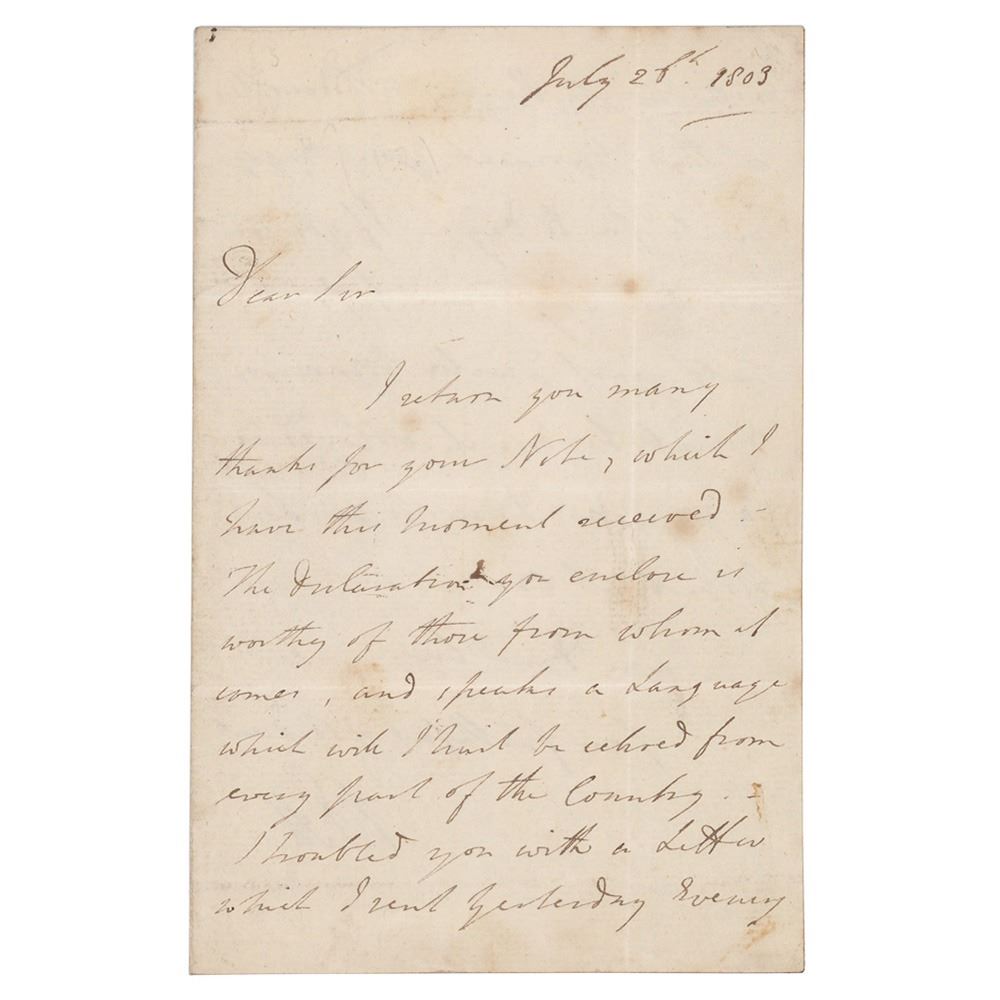 July 26th. 1803
Dear Sir
I return you many
thanks for your Note, which I
have this moment received -
The Declaration you enclose is
worthy of those from whom it
comes, and speaks a Language
which will I trust be echoed from
every part of the Country. -
I troubled you with a Letter
which I sent Yesterday Evening